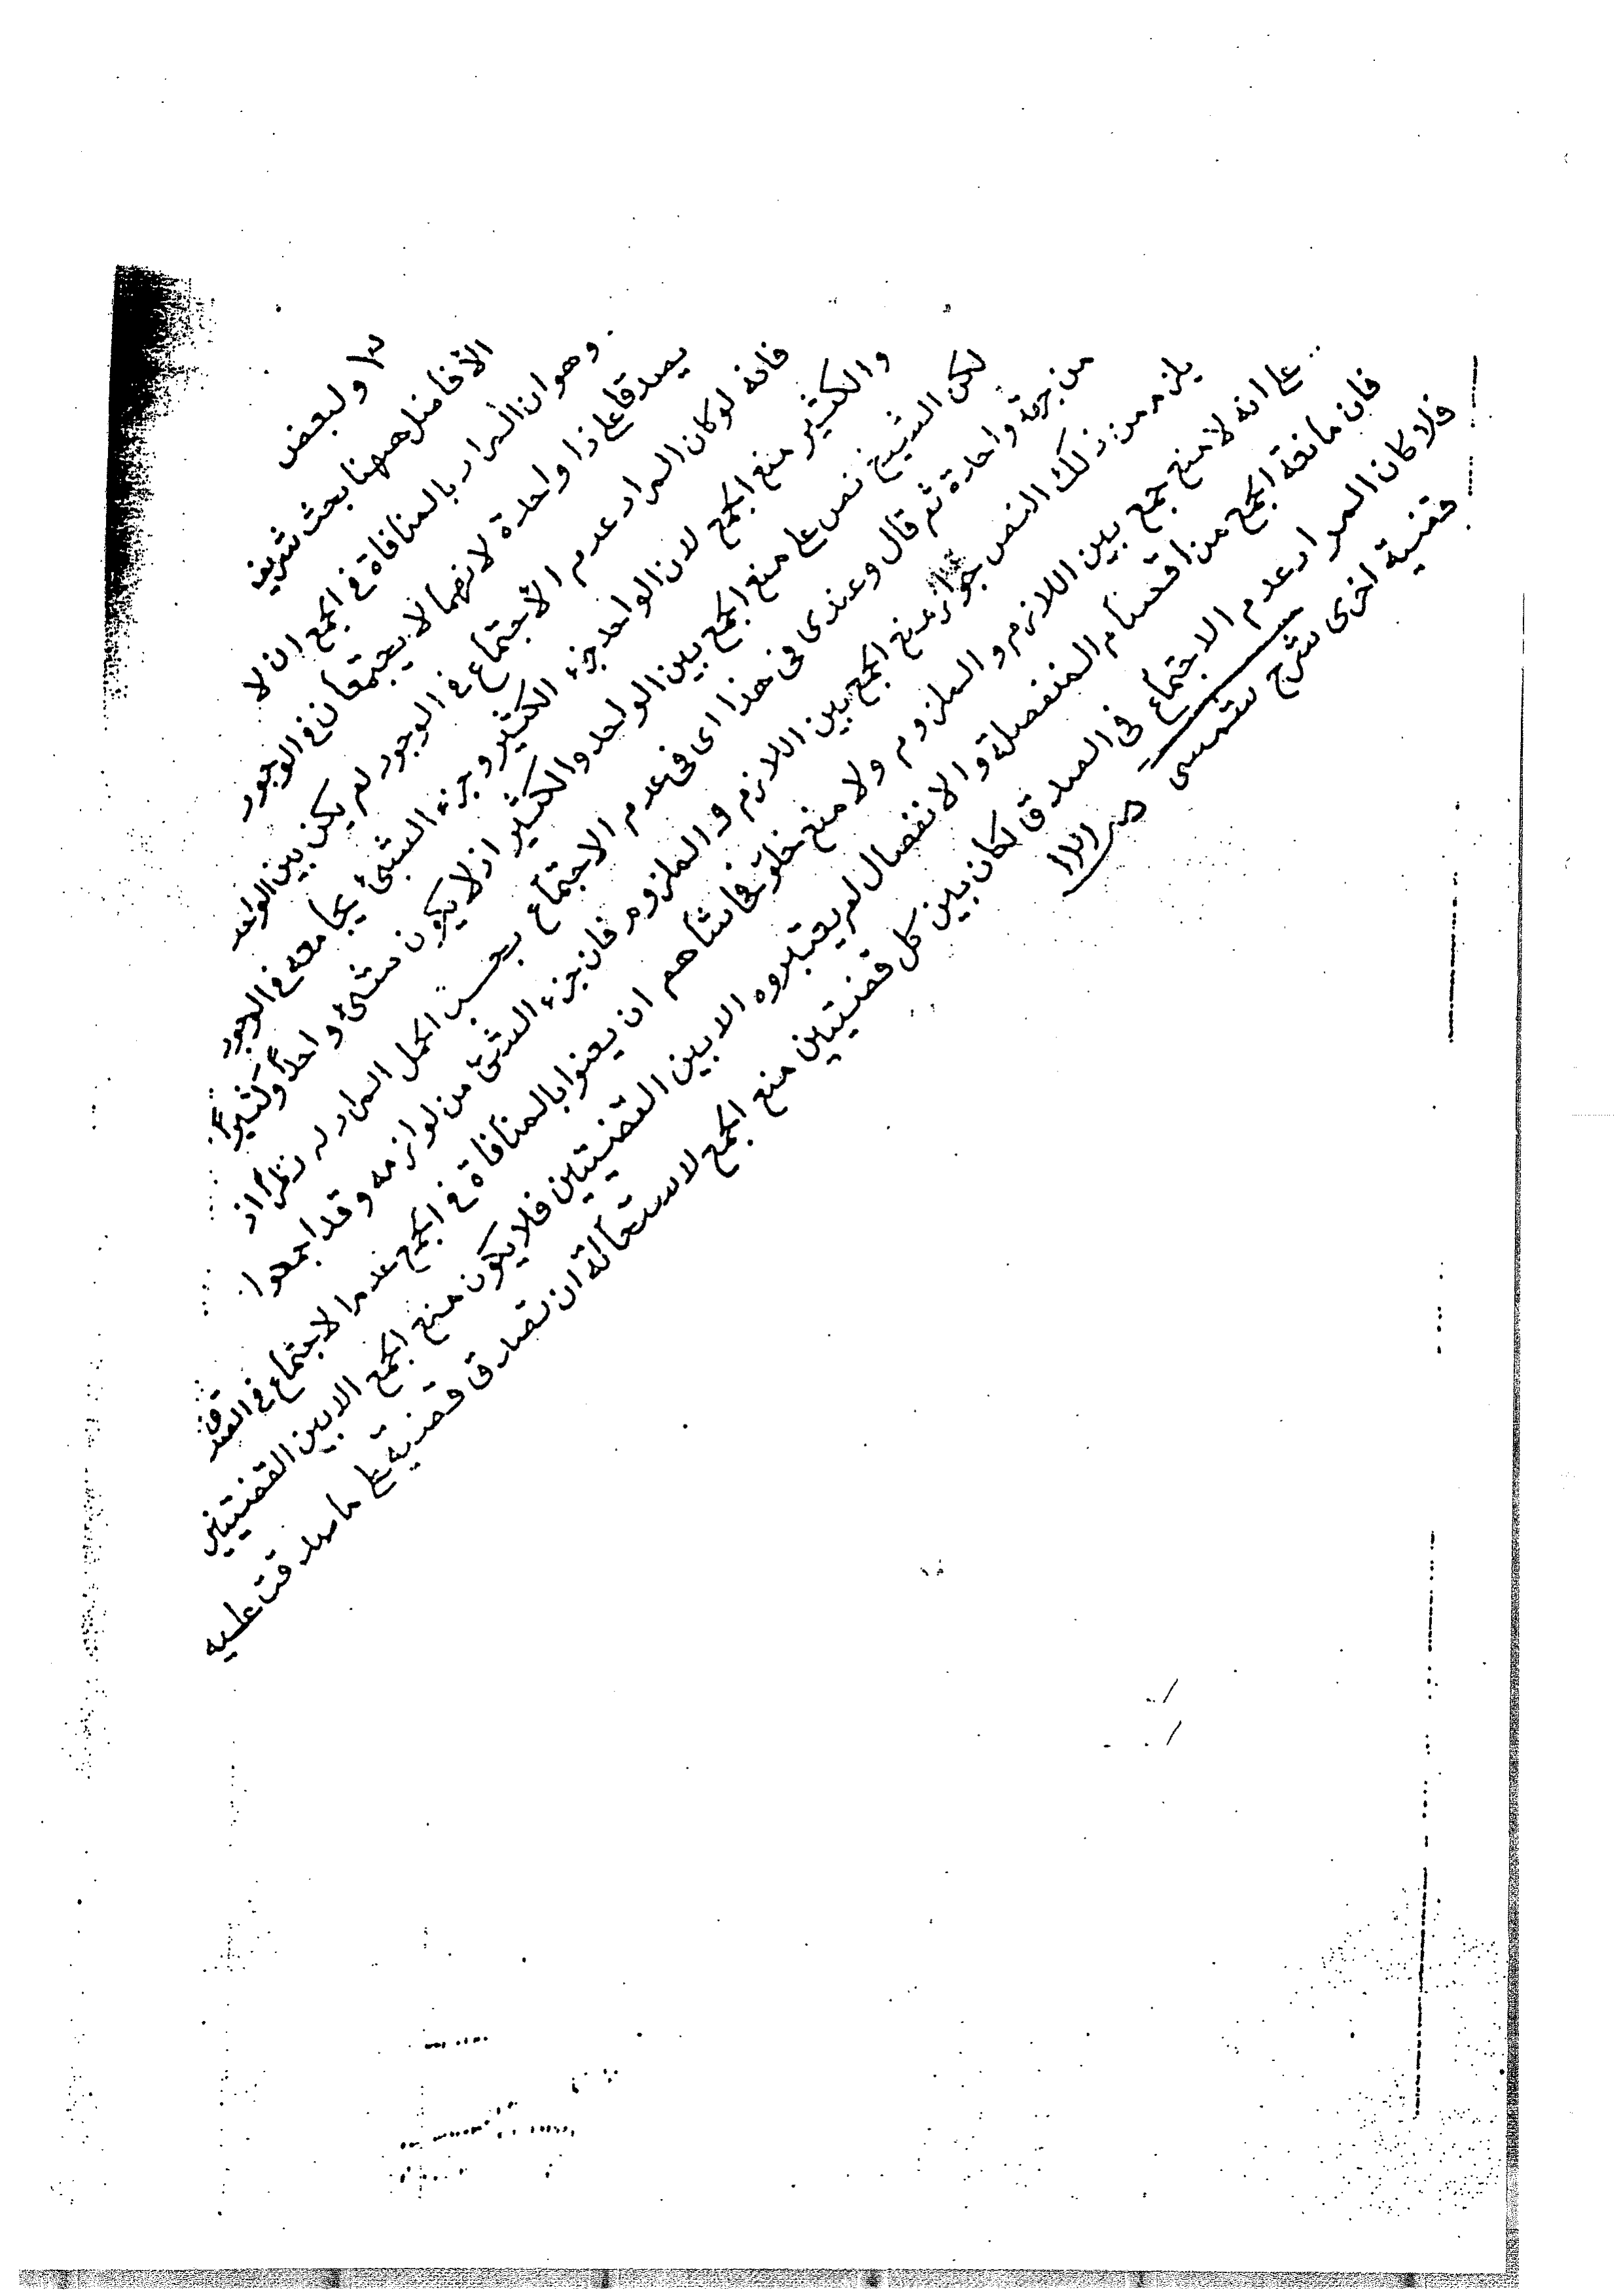 ٣ ولبعض
الأفاضل ههنا بحث شريف
وهو ان المراد بالمنافاة في الجمع ان لا
يصدقا على ذا واحدة لانهما لا يجتمعان في الوجود
فانه لو كان المراد عدم الأجتماع في الوجود لم يكن بين الواحد
والكثير منع الجمع لان الواحد جزء الكثير وجزء الشئ يجامعه في الوجود
لكن الشيخ نص على منع الجمع بين الواحد والكثير اذ لا يكون شئ واحدًا وكثيرًا
من جهة واحدة ثم قال وعندى فى هذا اى فى عدم الاجتماع بحسب الحمل المراد له نظر اذ
يلزم من ذلك النص جواز منع الجمع بين اللازم والملزوم فان جزء الشئ من لوازمه وقد اجمعوا
على انه لا منع جمع بين اللازم والملزوم ولا منع خلو فحاشاهم ان يعنوا بالمنافاة في الجمع عدم الاجتماع في الصدق
فان مانعة الجمع من اقسام المنفصلة والانفصال لم يعتبروه الا بين القضيتين فلا يكون منع الجمع الا بين القضيتين
فلا كان المراد عدم الاجتماع فى الصدق لكان بين كل قضيتين منع الجمع لاستحالة ان تصدق قضية على ما صدقت عليه
قضية اخرى شرح شمسى